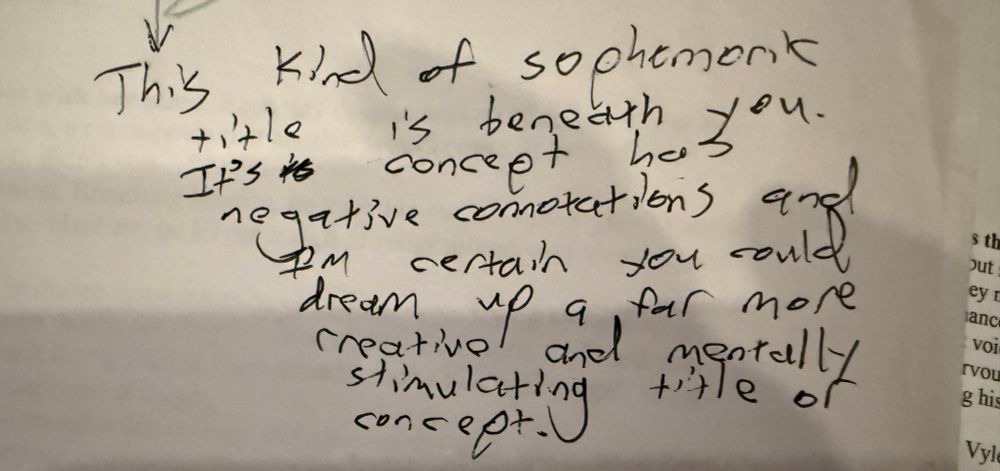 This kind of sophemorik
title is beneath you.
It's concept has
negative connotations and
I'm certain you could
dream up a far more
creative and mentally
stimulating title or
concept.
s th
out
ey n
ance
voi
rvou
g his
Vyle